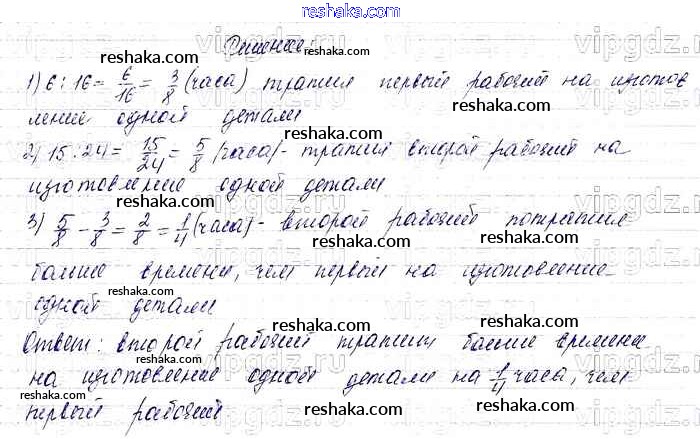 reshaka.com
Решение:
1) 6 : 16 = 6/16 = 3/8 (часа) тратил первый рабочий на изготов
ление одной детали
2) 15 : 24 = 15/24 = 5/8 (часа) - тратил второй рабочий на
изготовление одной детали
3) 5/8 - 3/8 = 2/8 = 1/4 (часа) - второй рабочий потратил
больше времени, чем первый на изготовление
одной детали
Ответ: второй рабочий тратит больше времени
на изготовление одной детали на 1/4 часа, чем
первый рабочий